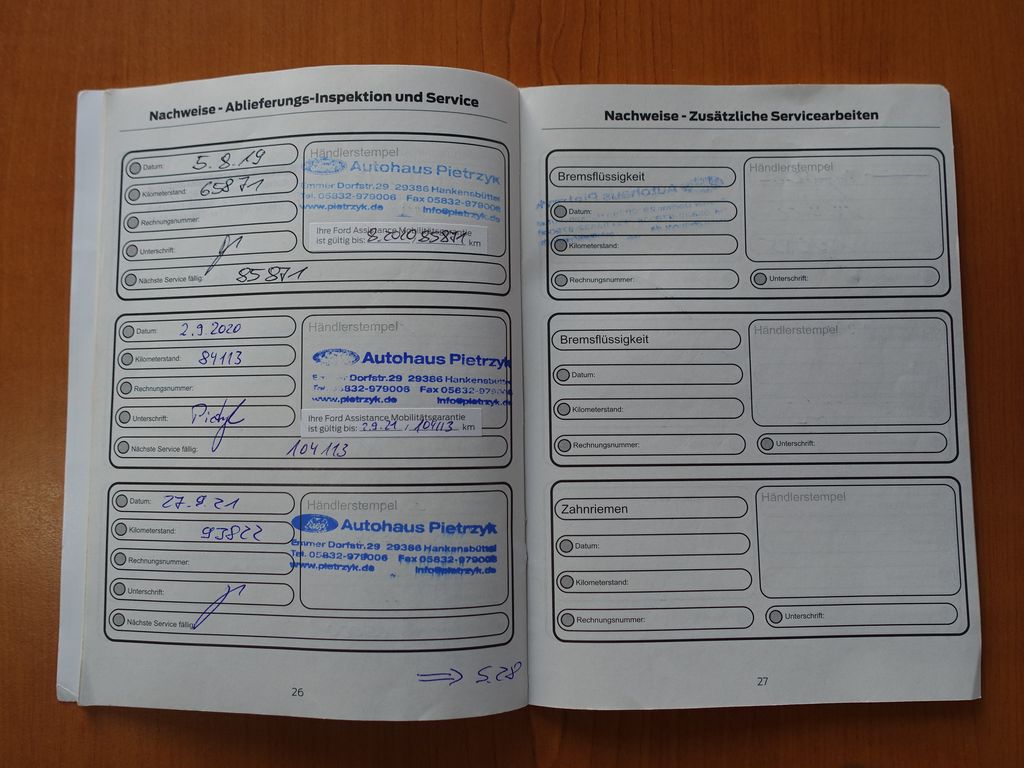 Nachweise - Ablieferungs-Inspektion und Service
Datum: 5.8.19
Kilometerstand: 65871
Rechnungsnummer:
Unterschrift:
Nächste Service fällig: 85871
Händlerstempel
Ford Autohaus Pietrzyk
Emmer Dorfstr.29 29386 Hankensbüttel
Tel. 05832-979006 Fax 05832-979008
www.pietrzyk.de info@pietrzyk.de
Ihre Ford Assistance Mobilitätsgarantie
ist gültig bis: 8.2020/85871 km
Datum: 2.9.2020
Kilometerstand: 84113
Rechnungsnummer:
Unterschrift:
Nächste Service fällig: 104113
Händlerstempel
Autohaus Pietrzyk
Dorfstr.29 29386 Hankensbüttel
Fax 05832-979008
www.pietrzyk.de info@pietrzyk.de
Ihre Ford Assistance Mobilitätsgarantie
ist gültig bis: 2.9.21 / 104113 km
Datum: 27.9.21
Kilometerstand: 93822
Rechnungsnummer:
Unterschrift:
Nächste Service fällig:
Händlerstempel
Ford Autohaus Pietrzyk
Emmer Dorfstr.29 29386 Hankensbüttel
Tel. 05832-979006 Fax 05832-979008
www.pietrzyk.de info@pietrzyk.de
⇒ S.28
26
Nachweise - Zusätzliche Servicearbeiten
Bremsflüssigkeit
Datum:
Kilometerstand:
Rechnungsnummer:
Händlerstempel
Unterschrift:
Bremsflüssigkeit
Datum:
Kilometerstand:
Rechnungsnummer:
Händlerstempel
Unterschrift:
Zahnriemen
Datum:
Kilometerstand:
Rechnungsnummer:
Händlerstempel
Unterschrift:
27